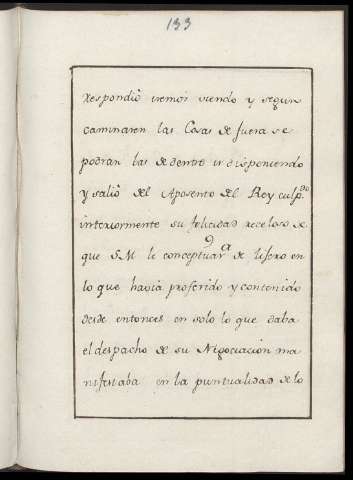 133
Respondiò iremos viendo y segun
caminaren las Cosas de fuera se
podran las de dentro ir disponiendo
y saliò del Aposento del Rey culp.do
interiormente su felicidad receloso de
que S.M. le conceptuar a de lijero en
lo que havia proferido y contenido
desde entonces en solo lo que daba
el despacho de su Negociacion ma
nifestaba en la puntualidad de lo